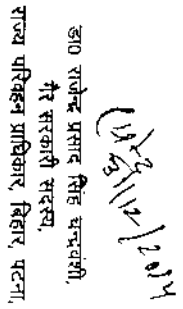 डा0 राजेन्द्र प्रसाद सिंह चन्द्रवंशी,
गैर सरकारी सदस्य,
राज्य परिवहन प्राधिकार, बिहार, पटना,